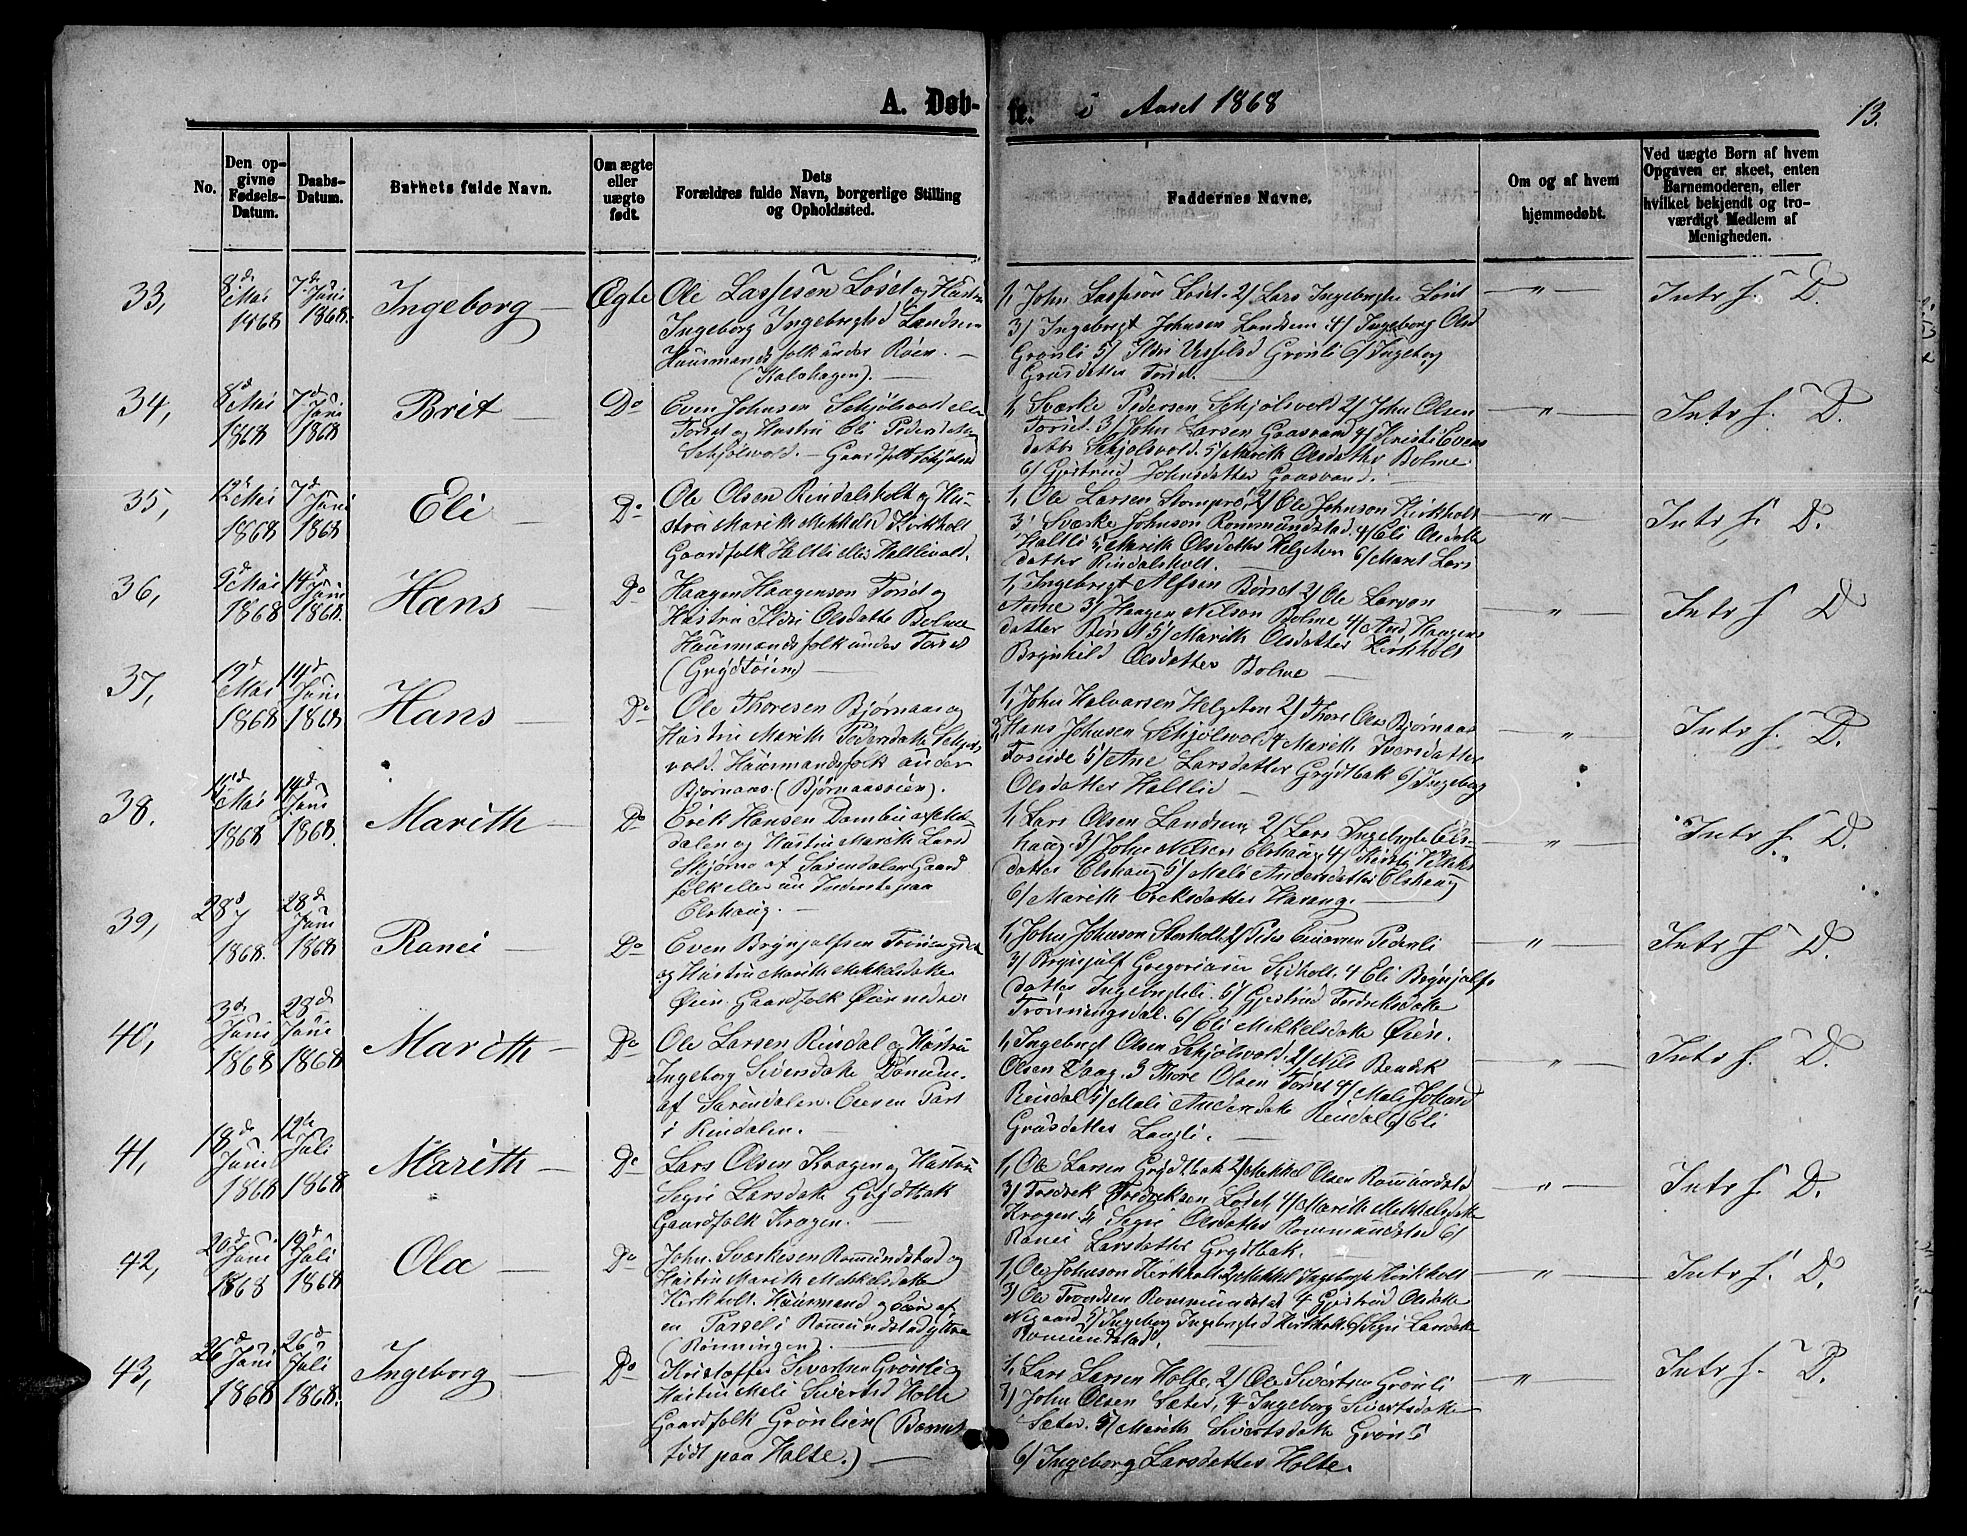 A. Døb-
te. i Aaret 1868
13.
No.
Den op-
givne
Fødsels-
Datum.
Daabs-
Datum.
Barnets fulde Navn.
Om ægte
eller
uægte
født.
Dets
Forældres fulde Navn, borgerlige Stilling
og Opholdssted.
Faddernes Navne.
Om og af hvem
hjemmedøbt.
Ved uægte Børn af hvem
Opgaven er skeet, enten
Barnemoderen, eller
hvilket bekjendt og tro-
værdigt Medlem af
Menigheden.
33,
8d Mai 1868
7d Juni 1868.
Ingeborg
Ægte
Ole Lassesen Løset og Hustru
Ingeborg Ingebrigtsd Landsem
Huusmandsfolk under Røen.
(Kalvhagen).
1, John Lassesøn Løset. 2/ Lars Ingebrigts Løset
3/ Ingebrigt Johnsen Landsem 4/ Ingeborg Olsd
Grønli 5/ Ildri Grønli 6/ Ingeborg
datter Torset.
"
Intr f. D.
34,
8d Mai 1868
7d Juni 1868
Brit
Do
Even Johnsen Skjølsvold eller
Torset og Hustru Eli Pedersdatter
Skjølsvold. Gaardfolk Skjølsvold
1, Sværke Pedersen Skjølsvold 2/ John Olsen
Torset. 3/ John Larsen Gaasvand 4/ Kristi Evens
datter Skjølsvold. 5/ Marith Olsdatter Bolme
6/ Gjertrud Johnsdatter Gaasvand.
"
Intr f. D.
35,
12te Mai 1868
7d Juni 1868
Eli
Do
Ole Olsen Rindalsholt og Hu-
stru Marith Mikkelsd Kirkholt
Gaardfolk Haltli eller Haltlivold.
1, Ole Larsen Stomprø, 2/ Ole Johnson Kirkholt
3/ Sværke Johnson Rommundstad. 4/ Eli Olsdatter
Haltli 5, Marith Olsdatter Helgetun 6/ Maret Lars
datter Rindalsholt.
"
Intr f. D.
36,
9d Mai 1868
14d Juni 1868.
Hans
Do
Haagen Haagenson Torset og
Hustru Ildri Olsdatter Bolme
Huusmandsfolk under Torset
(Grydtøien)
1, Ingebrigt Alfsen Børset 2/ Ole Larson
Aune 3/ Haagen Nilson Bolme 4/ Haagens
datter Børset 5/ Marith Olsdatter Kirkholt
Brynhild Olsdatter Bolme
"
Intr f D
37,
19d Mai 1868
14d Juni 1868
Hans
Do
Ole Thoresen Bjørnaas og
Hustru Marith Pedersdatter Skjøls
vold. Huusmandsfolk under
Bjørnaas. (Bjørnaasøien).
1, John Halvarsen Helgetun 2/ Thore Ols Bjørnaas
3, Hans Johnsen Skjølsvold 4 Marith Iversdatter
Torset 5/ Ane Larsdatter Grydtbak 6/ Ingeborg
Olsdatter Haltli
"
Intr f. D.
38.
Mai 1868
14d Juni 1868.
Marith
Do
Erik Hansen Dombu af
dalen og Hustru Marith Larsd
Skjørmo af Surendalen Gaard
folk eller nu Inderste paa
Elshaug.
1, Lars Olsen Landsem, 2/ Lars Ingebrigts Els-
haug. 3/ John Nilsen Elshaug. 4/ Kirsti
datter Elshaug 5/ Mali Andersdatter Elshaug
6/ Marith Eriksdatter Harang.
"
Intr f. D.
39,
28d 1868.
28d Juni 1868
Ranei
Do
Even Brynjulfsen Trønningsdal
og Hustru Marith Mikkelsdatter
Øien. Gaardfolk Øien nedre.
1, John Johnson Storholt 2/ Peder Einersen Pederli
3/ Brynjulf Gregoriusen 4 Eli Brynjulfs
datter Ingebrigtli. 5/ Gjertrud Fredriksdatter
Trønningsdal. 6/ Eli Mikkelsdatter Øien.
"
Intr f D.
40,
3d Juni 1868
28d Juni 1868
Marith
Do
Ole Larsen Rindal og Hustru
Ingeborg Siversdatter Dønnem.
af Surendalen. Eier en Part
i Rindalen.
1, Ingebrigt Olsen Skjølsvold. 2/ Nils Bendik
Olsen Vaag. 3 Thore Olsen Torset 4/ Mali
Rindal 5/ Mali Andersdatter Rindal 6/ Eli
datter Langli.
"
Intr f. D.
41,
18d Juni 1868
12te Juli 1868
Marith
Do
Lars Olsen Krogen og Hustru
Segri Larsdatter Grydtbak
Gaardfolk Krogen.
1, Ole Larsen Grydtbak 2/ Mikkel Olsen Rommundstad
3/ Fredrik Fredriksen Løset, 4/ Marith Mikkelsdatter
Krogen. 5, Segri Olsdatter Rommundstad 6/
Ranei Larsdatter Grydtbak.
"
Intr f. D.
42,
20d Juni 1868
19d Juli 1868
Ola
Do
John Sværkesen Rommundstad og
Hustru Marith Mikkelsdatter
Kirkholt. Huusmand og Eier af
en Parsel i Rommundstad ytre
(Rønningen).
1, Ole Johnson Kirkholt. 2 Mikkel Ingebrigts Kirkholt
3/ Ole Trondsen Rommundstad 4 Gjertrud Olsdatter
Negaard 5/ Ingeborg Ingebrigtsd Kirkholt. 6/ Segri Larsdatter
Romundstad.
"
Intr f. D.
43,
26d Juni 1868
26d Juli 1868.
Ingeborg
Do
Kristoffer Sivertsen Grønli og
Hustru Mali Sivertsd Holte
Gaardfolk Grønlien (Barnet
født paa Holte.)
1, Lars Larsen Holte, 2/ Ole Sivertsen Grønli
3/ John Olsen Sæter, 4 Ingeborg Sivertsdatter
Sæter. 5/ Marith Sivertsdatter Grønli
6/ Ingeborg Larsdatter Holte.
"
Intr f. D.